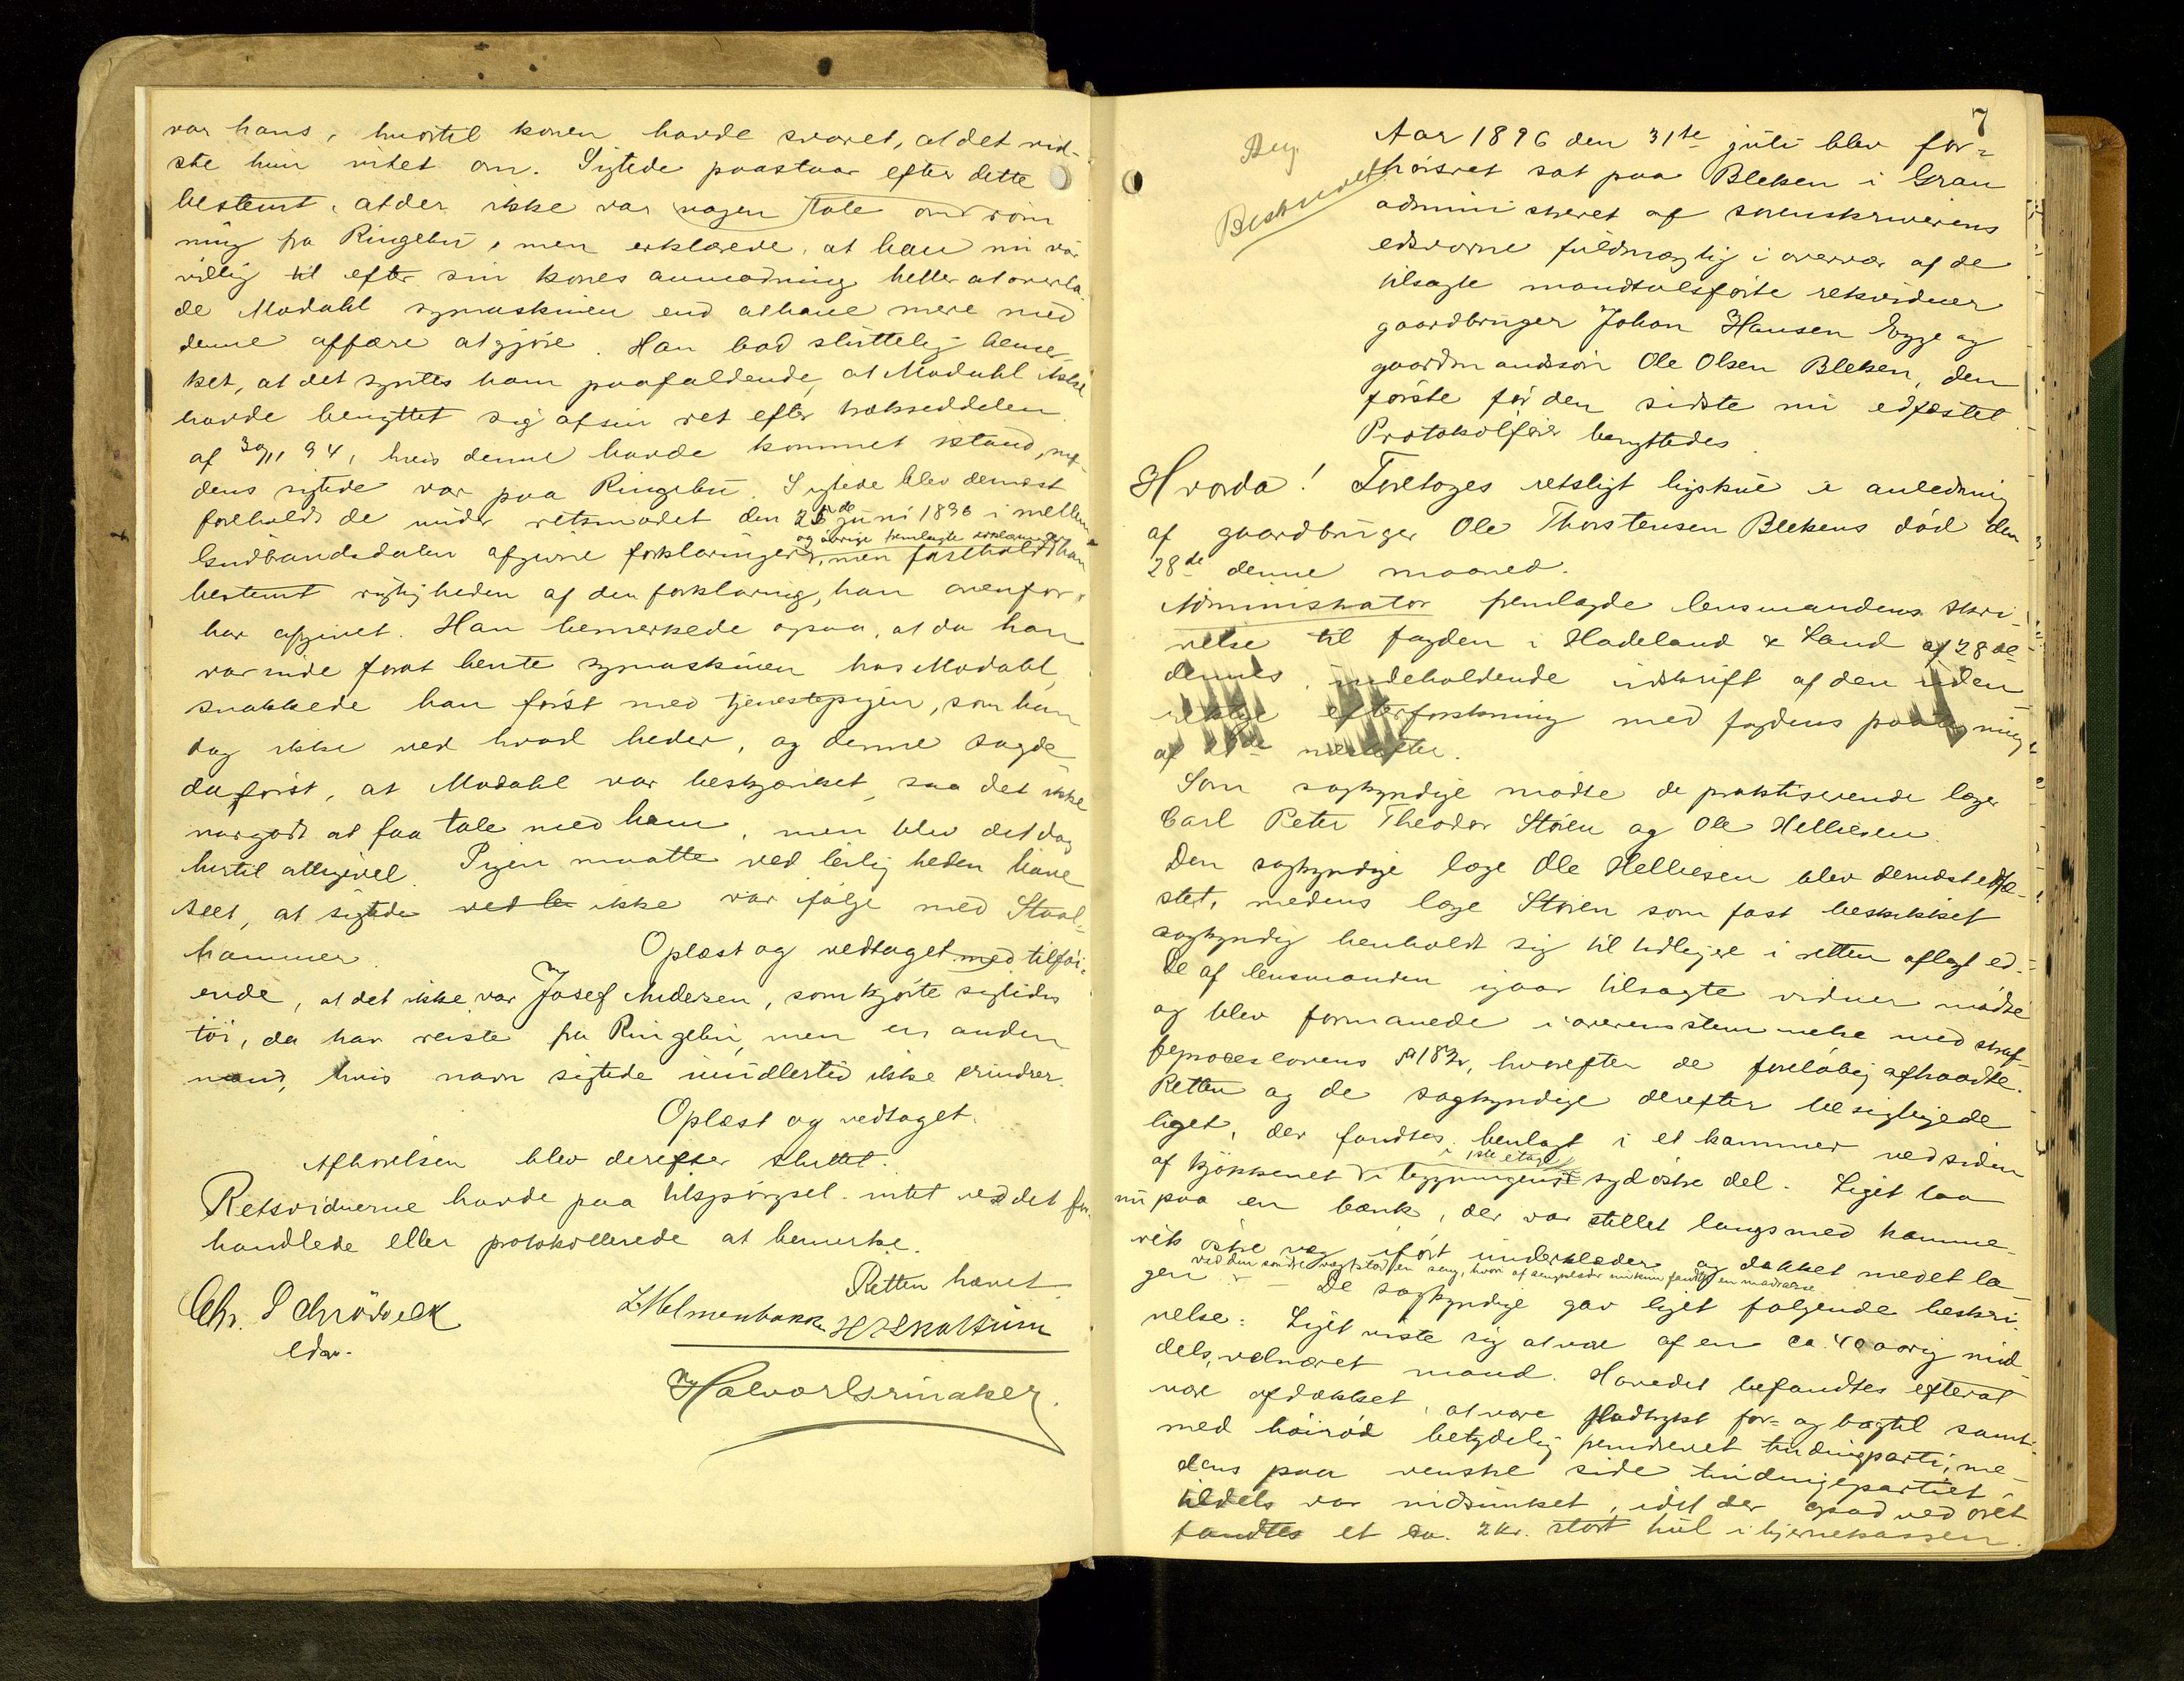 var hans, hvortil konen havde svaret, at det vid-
ste hun intet om. Sigtede paastaar efter dette
bestemt, at der ikke var nogen tale om røm
ning fra Ringebu, men erklærede, at han nu var
villig til efter sin kones anmodning heller at overla-
de Modahl symaskinen end at have mere med
denne affære at gjøre. Han bad sluttelig bemer-
ket, at det syntes ham paafaldende, at Modahl ikke
havde benyttet sig af sin ret efter trækseddelen
af 30/11 94, hvis denne havde kommet istand, me-
dens sigtede var paa Ringebu. Sigtede blev dernæst
foreholdt de under retsmødet den 26de juni 1896 i mellem
Gudbrandsdalen afgivne forklaringer og øvrige fremlagte erklæringer, men fastholdt han
bestemt rigtigheden af den forklaring, han ovenfor
har afgivet. Han bemerkede ogsaa, at da han
var inde forat hente symaskinen hos Modahl,
snakkede han først med tjenestepigen, som han
dog ikke ved hvad heder, og denne sagde
da først, at Modahl var beskjænket, saa det ikke
var godt at faa tale med ham, men blev det dog
hertil alligevel. Pigen maatte ved leiligheden have
seet, at sigtede ikke var ifølge med Staal-
hammer. Oplæst og vedtaget med tilføi-
ende, at det ikke var Josef Andersen, som kjørte sigtedes
tøi, da han reiste fra Ringebu, men en anden
mand, hvis navn sigtede imidlertid ikke erindrer.
Oplæst og vedtaget.
Afhørelsen blev derefter sluttet.
Retsvidnerne havde paa tilspørgsel intet ved det for-
handlede eller protokollerede at bemerke.
Retten hævet.
Chr. Schrøwelk
edsv.
7
Beg.
Beskrevet
Aar 1896 den 31te juli blev for-
hørsret sat paa Bleken i Gran
administreret af sorenskriverens
edsvorne fuldmægtig i overvær af de
tilsagte mandtalsførte retsvidner
gaardbruger Johan Hansen Egge og
gaardmandssøn Ole Olsen Bleken, den
første før den sidste nu edfæstet.
Protokolfører benyttedes.
Hvorda! Foretoges retsligt ligskue i anledning
af gaardbruger Ole Thorstensen Blekens død den
28de denne maaned.
Administrator fremlagde lensmandens skri-
velse til fogden i Hadeland & Land af 28de
dennes, indeholdende udskrift af den uden
retlige efterforskning med fogdens paategning
af næstefter.
Som sagkyndige mødte de praktiserende læger
Carl Peter Theodor Støren og Ole Helliesen.
Den sagkyndige læge Ole Helliesen blev dernæst edfæ-
stet, medens læge Støren som fast beskikket
sagkyndig henholdt sig til tidligere i retten aflagt ed.
De af lensmanden igaar tilsagte vidner mødte
og blev formanede i overensstemmelse med straf-
feproceslovens § 182, hvorefter de foreløbig aftraadte.
Retten og de sagkyndige derefter besigtigede
liget, der fandtes henlagt i et kammer ved siden
af kjøkkenet i 1ste etage i bygningens sydøstre del. Liget laa
nu paa en bænk, der var stillet langsmed kamme-
rets østre væg iført underklæder og dækket med et la-
gen. ved den søndre væg stod en seng, hvor af sengklæder nu kun fandtes en madrasse
De sagkyndige gav liget følgende beskri-
velse: Liget viste sig at være af en ca. 40 aarig mid-
dels, velnæret mand. Hovedet befandtes efterat
være afdækket, at være fladtrykt for- og bagtil samt
med høirød betydelig fremdrevet tindingparti, me-
dens paa venstre side tindingepartiet
tildels var nedsunket, idet der opad ved øret
fandtes et ca. 2 kr. stort hul i hjernekassen.